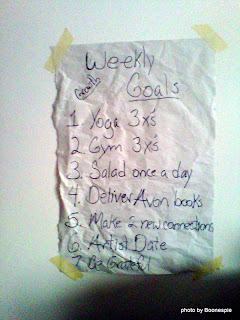 Weekly
Growth
Goals
1. Yoga 3x's
2. Gym 3x's
3. Salad once a day
4. Deliver Avon books
5. Make 2 new connections
6. Artist Date
7. Be Grateful
photo by Boonespie